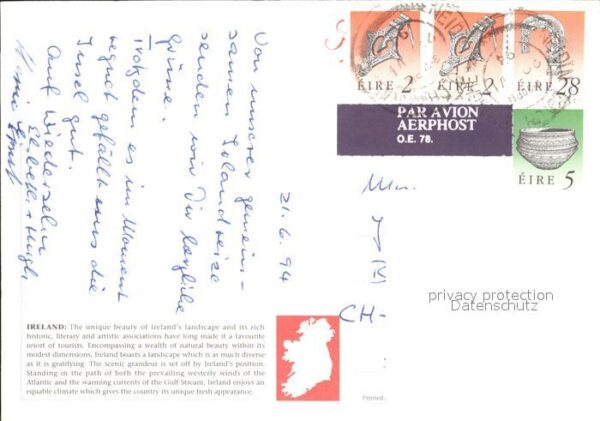 21. 6. 94
Von unserer gemein-
samen Irlandreise
senden wir Dir herzliche
Grüsse.
Trotzdem es im Moment
regnet gefällt uns die
Insel gut.
Auf Wiedersehn
ÉIRE 2
ÉIRE 2
ÉIRE 28
ÉIRE 5
PAR AVION
AERPHOST
O.E. 78.
CH-
privacy protection
Datenschutz
IRELAND: The unique beauty of Ireland's landscape and its rich
historic, literary and artistic associations have long made it a favourite
resort of tourists. Encompassing a wealth of natural beauty within its
modest dimensions, Ireland boasts a landscape which is as much diverse
as it is gratifying. The scenic grandeur is set off by Ireland's position.
Standing in the path of both the prevailing westerly winds of the
Atlantic and the warming currents of the Gulf Stream, Ireland enjoys an
equable climate which gives the country its unique fresh appearance.
Printed